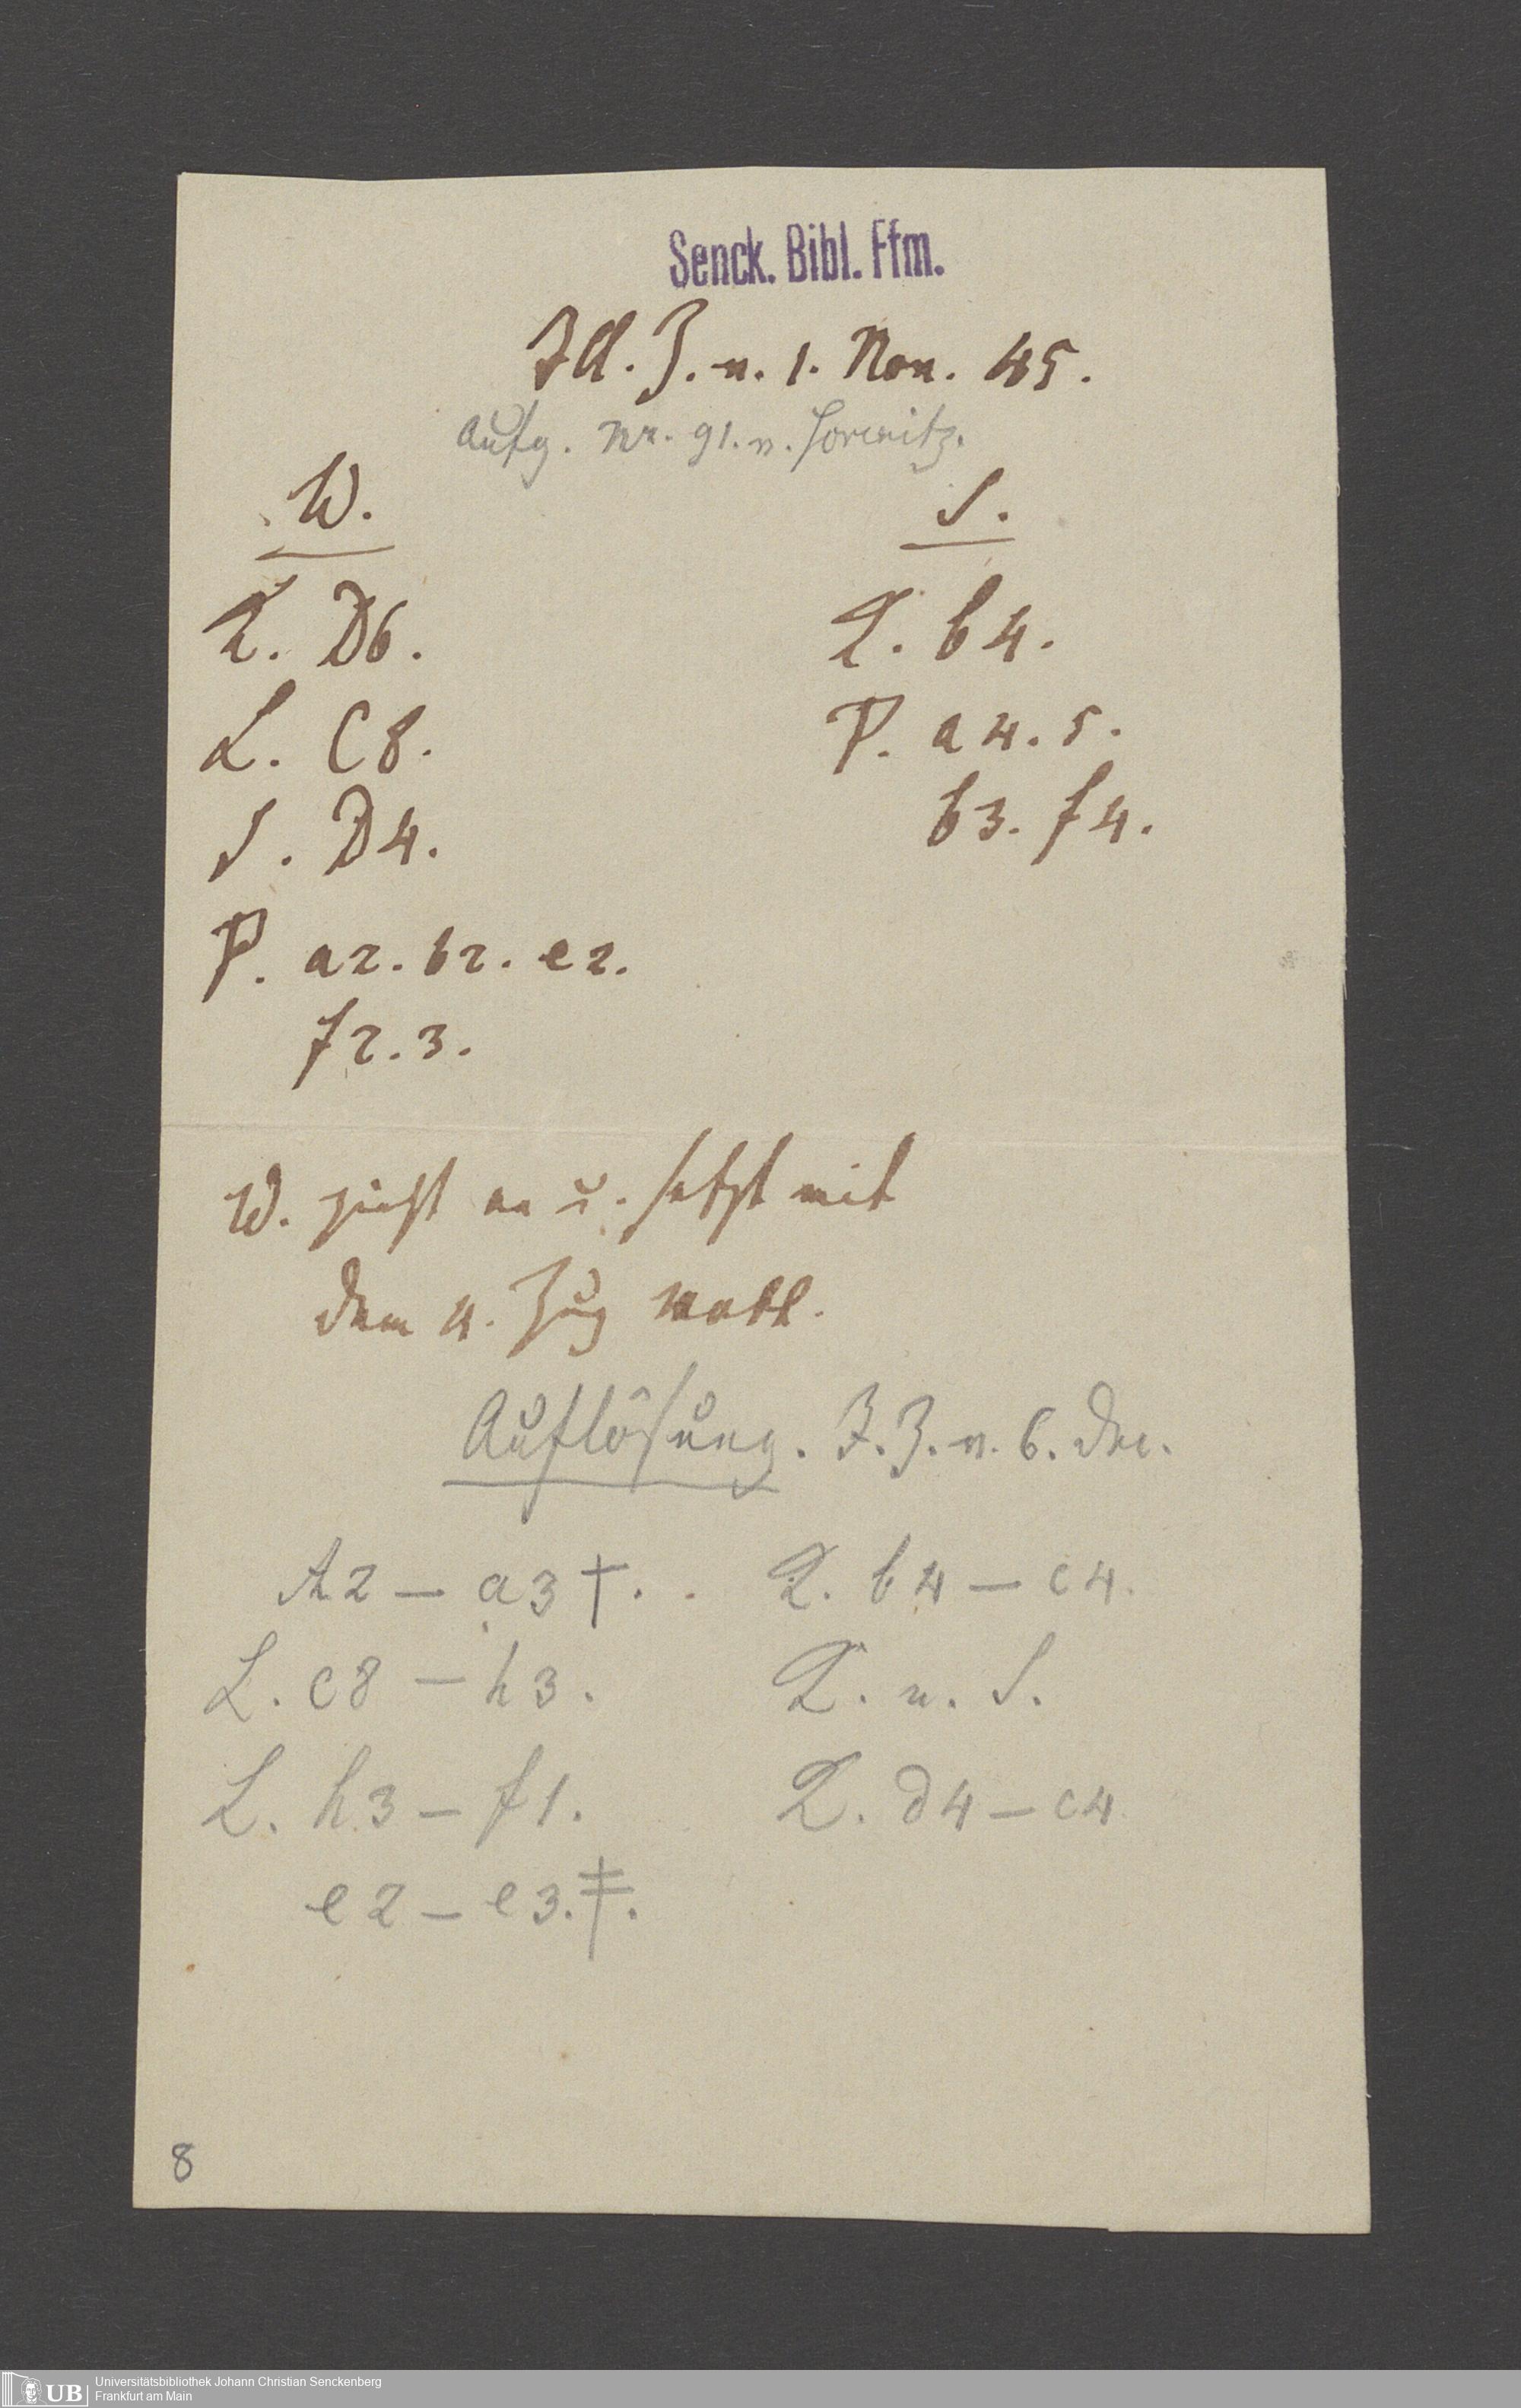 Senck. Bibl. Ffm.
Ill. Z. v. 1. Nov. 45.
Aufg. Nr. 91. v.
W. S.
K. D6. K. b4.
L. C8. P. a4. 5.
S. D4. b3. f4.
P. a2. b2. e2.
f2. 3.
W. zieht an u. setzt mit
dem 4. Zug matt.
Auflösung. I. Z. v. 6. Dec.
A2 — a3 †. K. b4 — c4.
L. c8 — h3. K. n. S.
L. h3 — f1. K. d4 — c4
e2 — e3. ‡.
8
UB Universitätsbibliothek Johann Christian Senckenberg
Frankfurt am Main